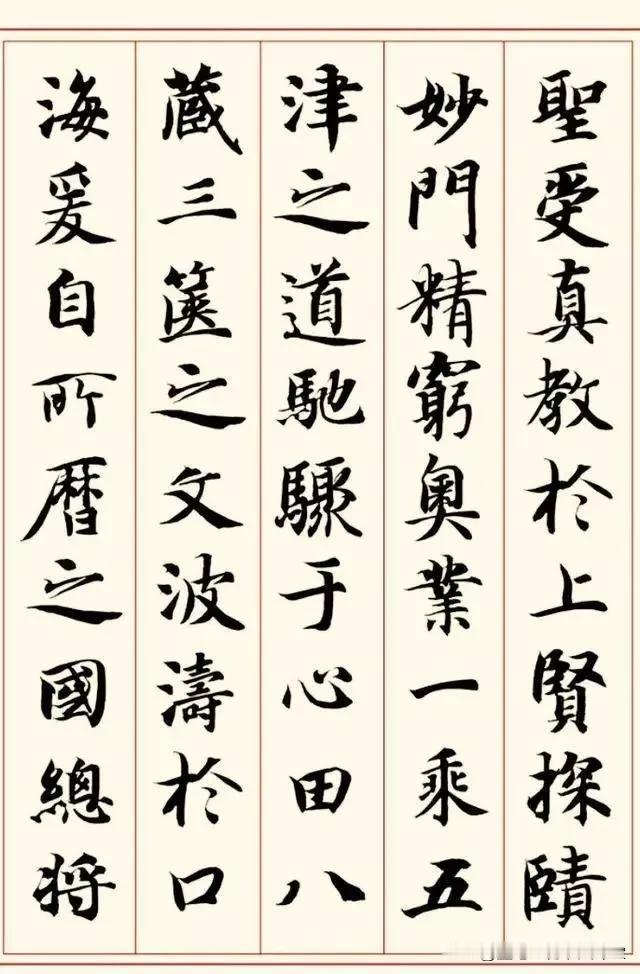 聖受真教於上賢探賾
妙門精窮奧業一乘五
津之道馳驟于心田八
藏三篋之文波濤於口
海爰自所曆之國總將